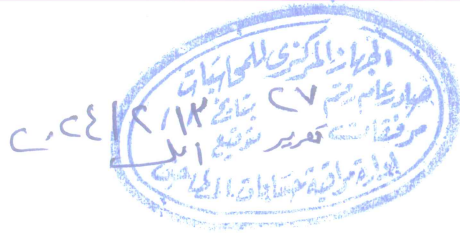 الجهاز المركزى للمحاسبات
صادر عام رقم ٢٧ بتاريخ ٢٠٢٤/٢/١٣
مرفقات تقرير توقيع
إدارة مراقبة حسابات